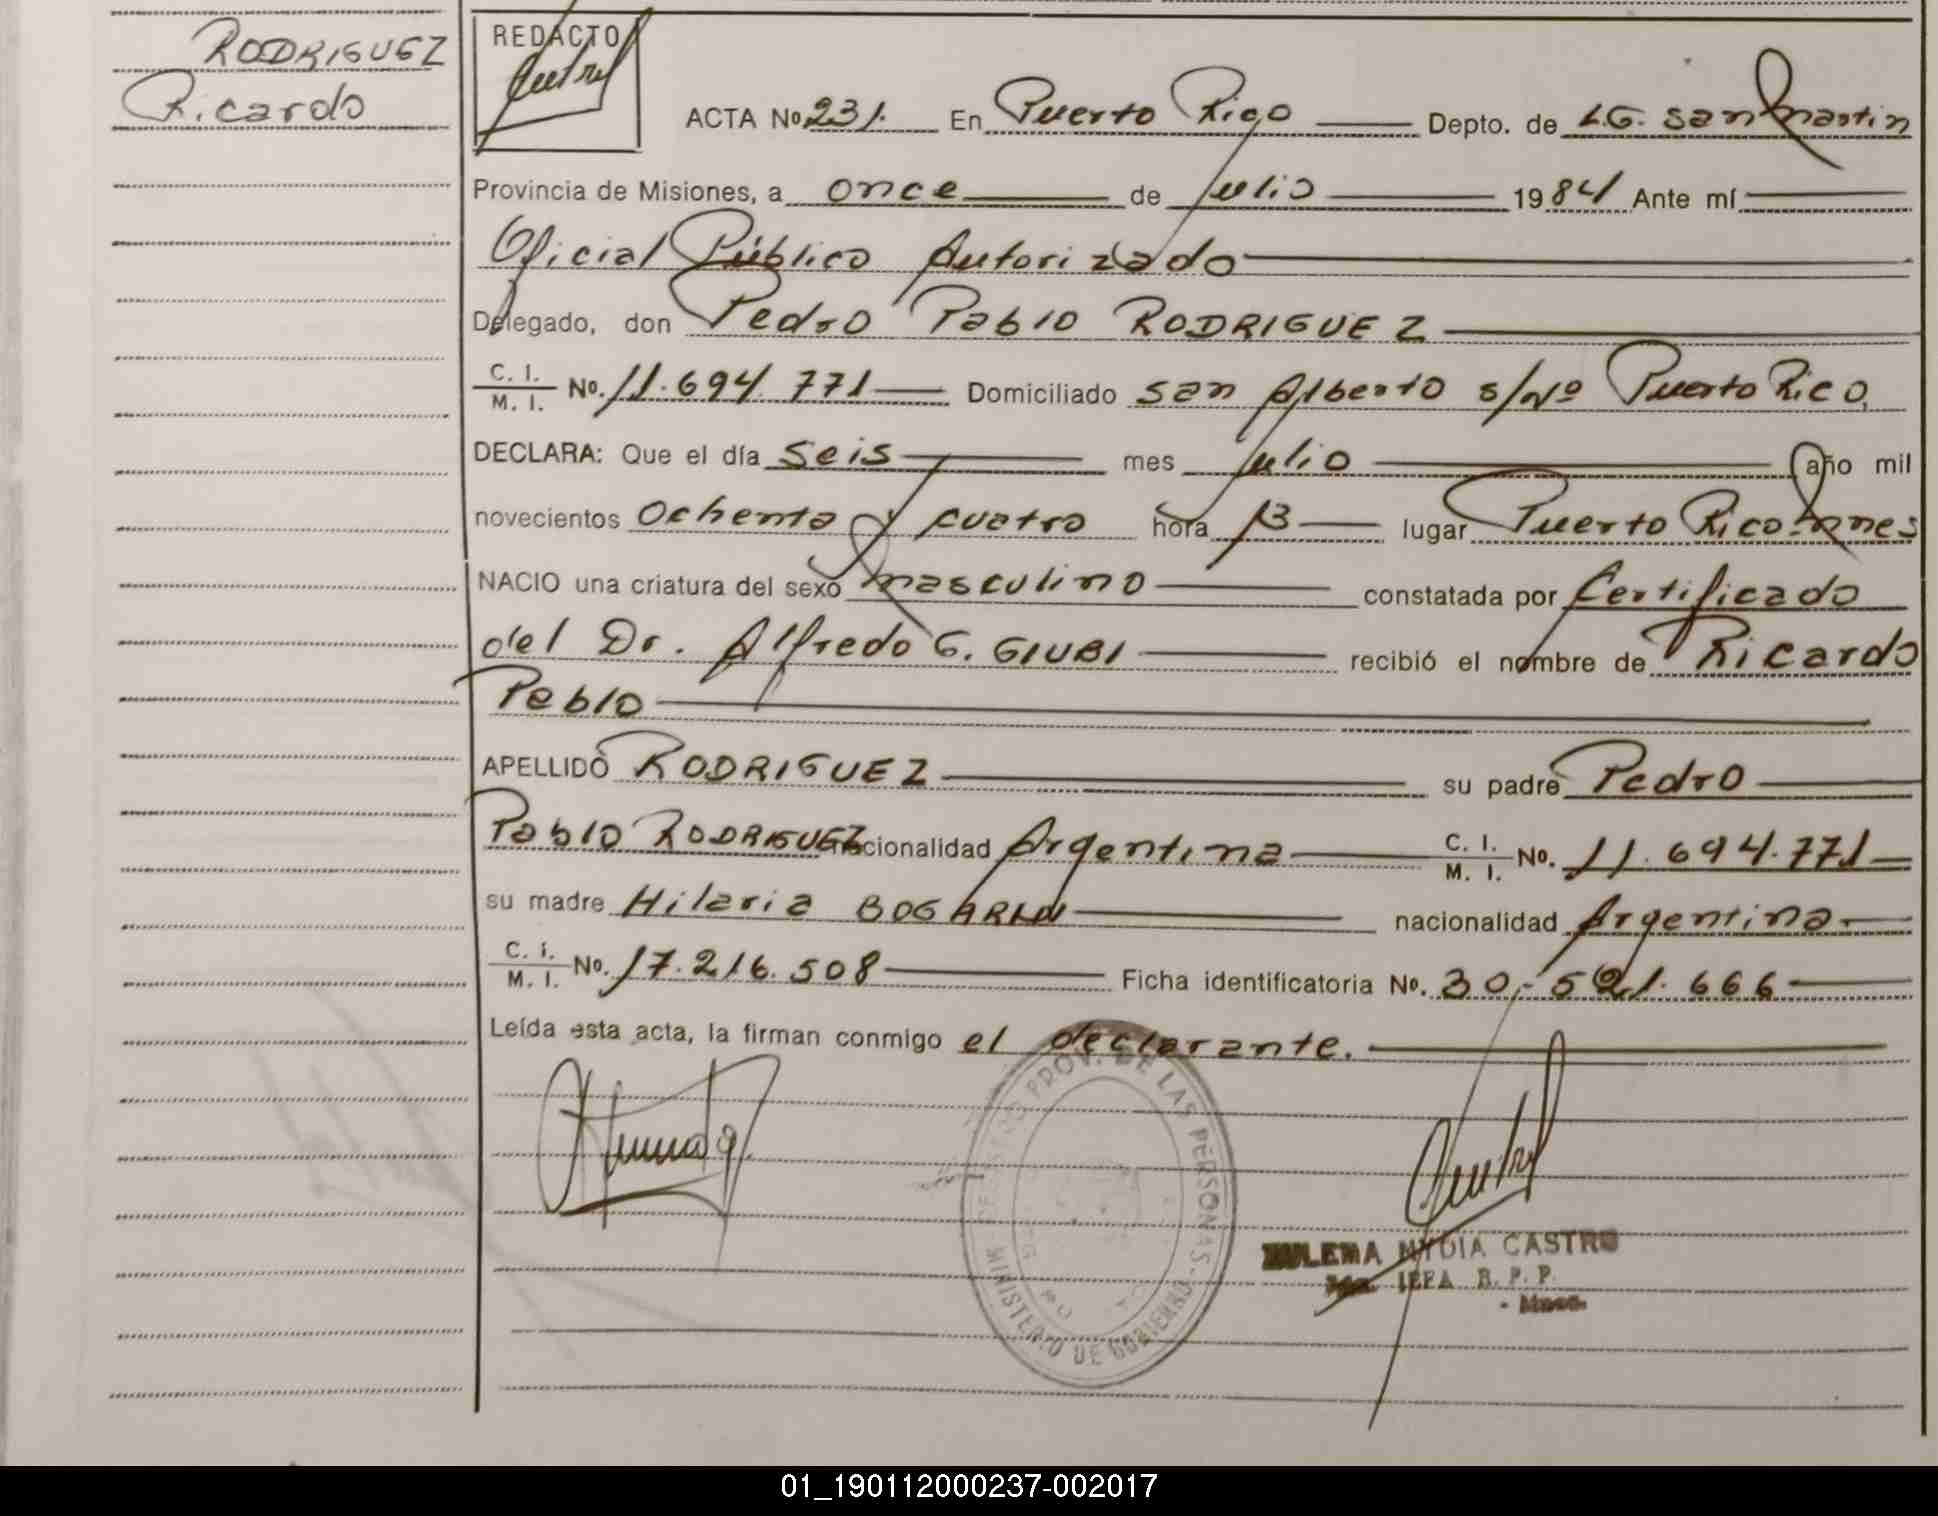 RODRIGUEZ
Ricardo
REDACTO
ACTA No 231. En Puerto Rico Depto. de L.G. San Martin
Provincia de Misiones, a once de Julio 1984 Ante mí
Oficial Público Autorizado
Delegado, don Pedro Pablo RODRIGUEZ
C. I. M. I. No. 11.694.771 Domiciliado San Alberto s/Nº Puerto Rico,
DECLARA: Que el día seis mes Julio año mil
novecientos Ochenta y cuatro hora 13 lugar Puerto Rico-Mnes
NACIO una criatura del sexo masculino constatada por Certificado
del Dr. Alfredo G. GIUBI recibió el nombre de Ricardo
Pablo
APELLIDO RODRIGUEZ su padre Pedro
Pablo RODRIGUEZ nacionalidad Argentina C. I. M. I. No. 11.694.771
su madre Hilaria BOGARIN nacionalidad Argentina.
C. I. M. I. No. 17.216.508 Ficha identificatoria No. 30.-521.666
Leída esta acta, la firman conmigo el declarante.
PROV. DE LAS PERSONAS - MINISTERIO DE GOBIERNO
ZULEMA NYDIA CASTRO
JEFA R. P. P.
- Mnes.
01_190112000237-002017